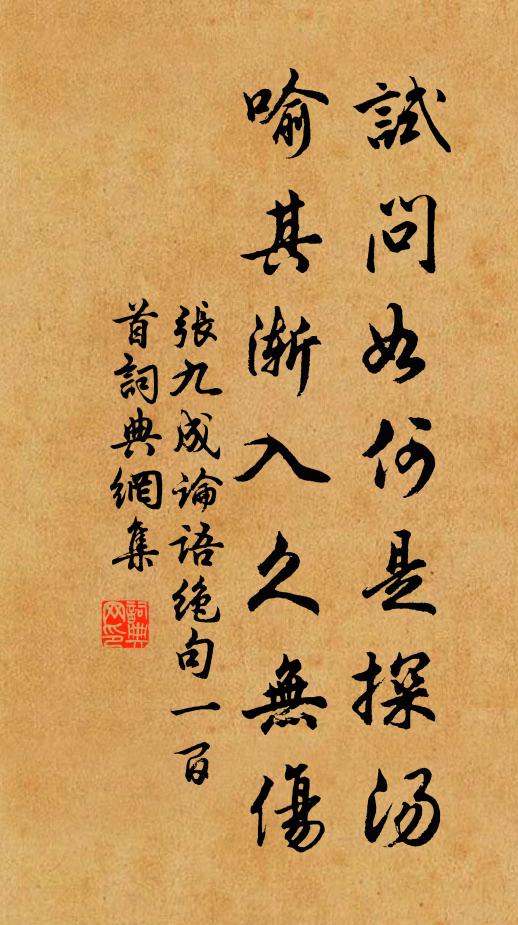 試問如何是探湯
喻其漸入久無傷
張九成論語絶句一百
首詞典網集
詞典網印